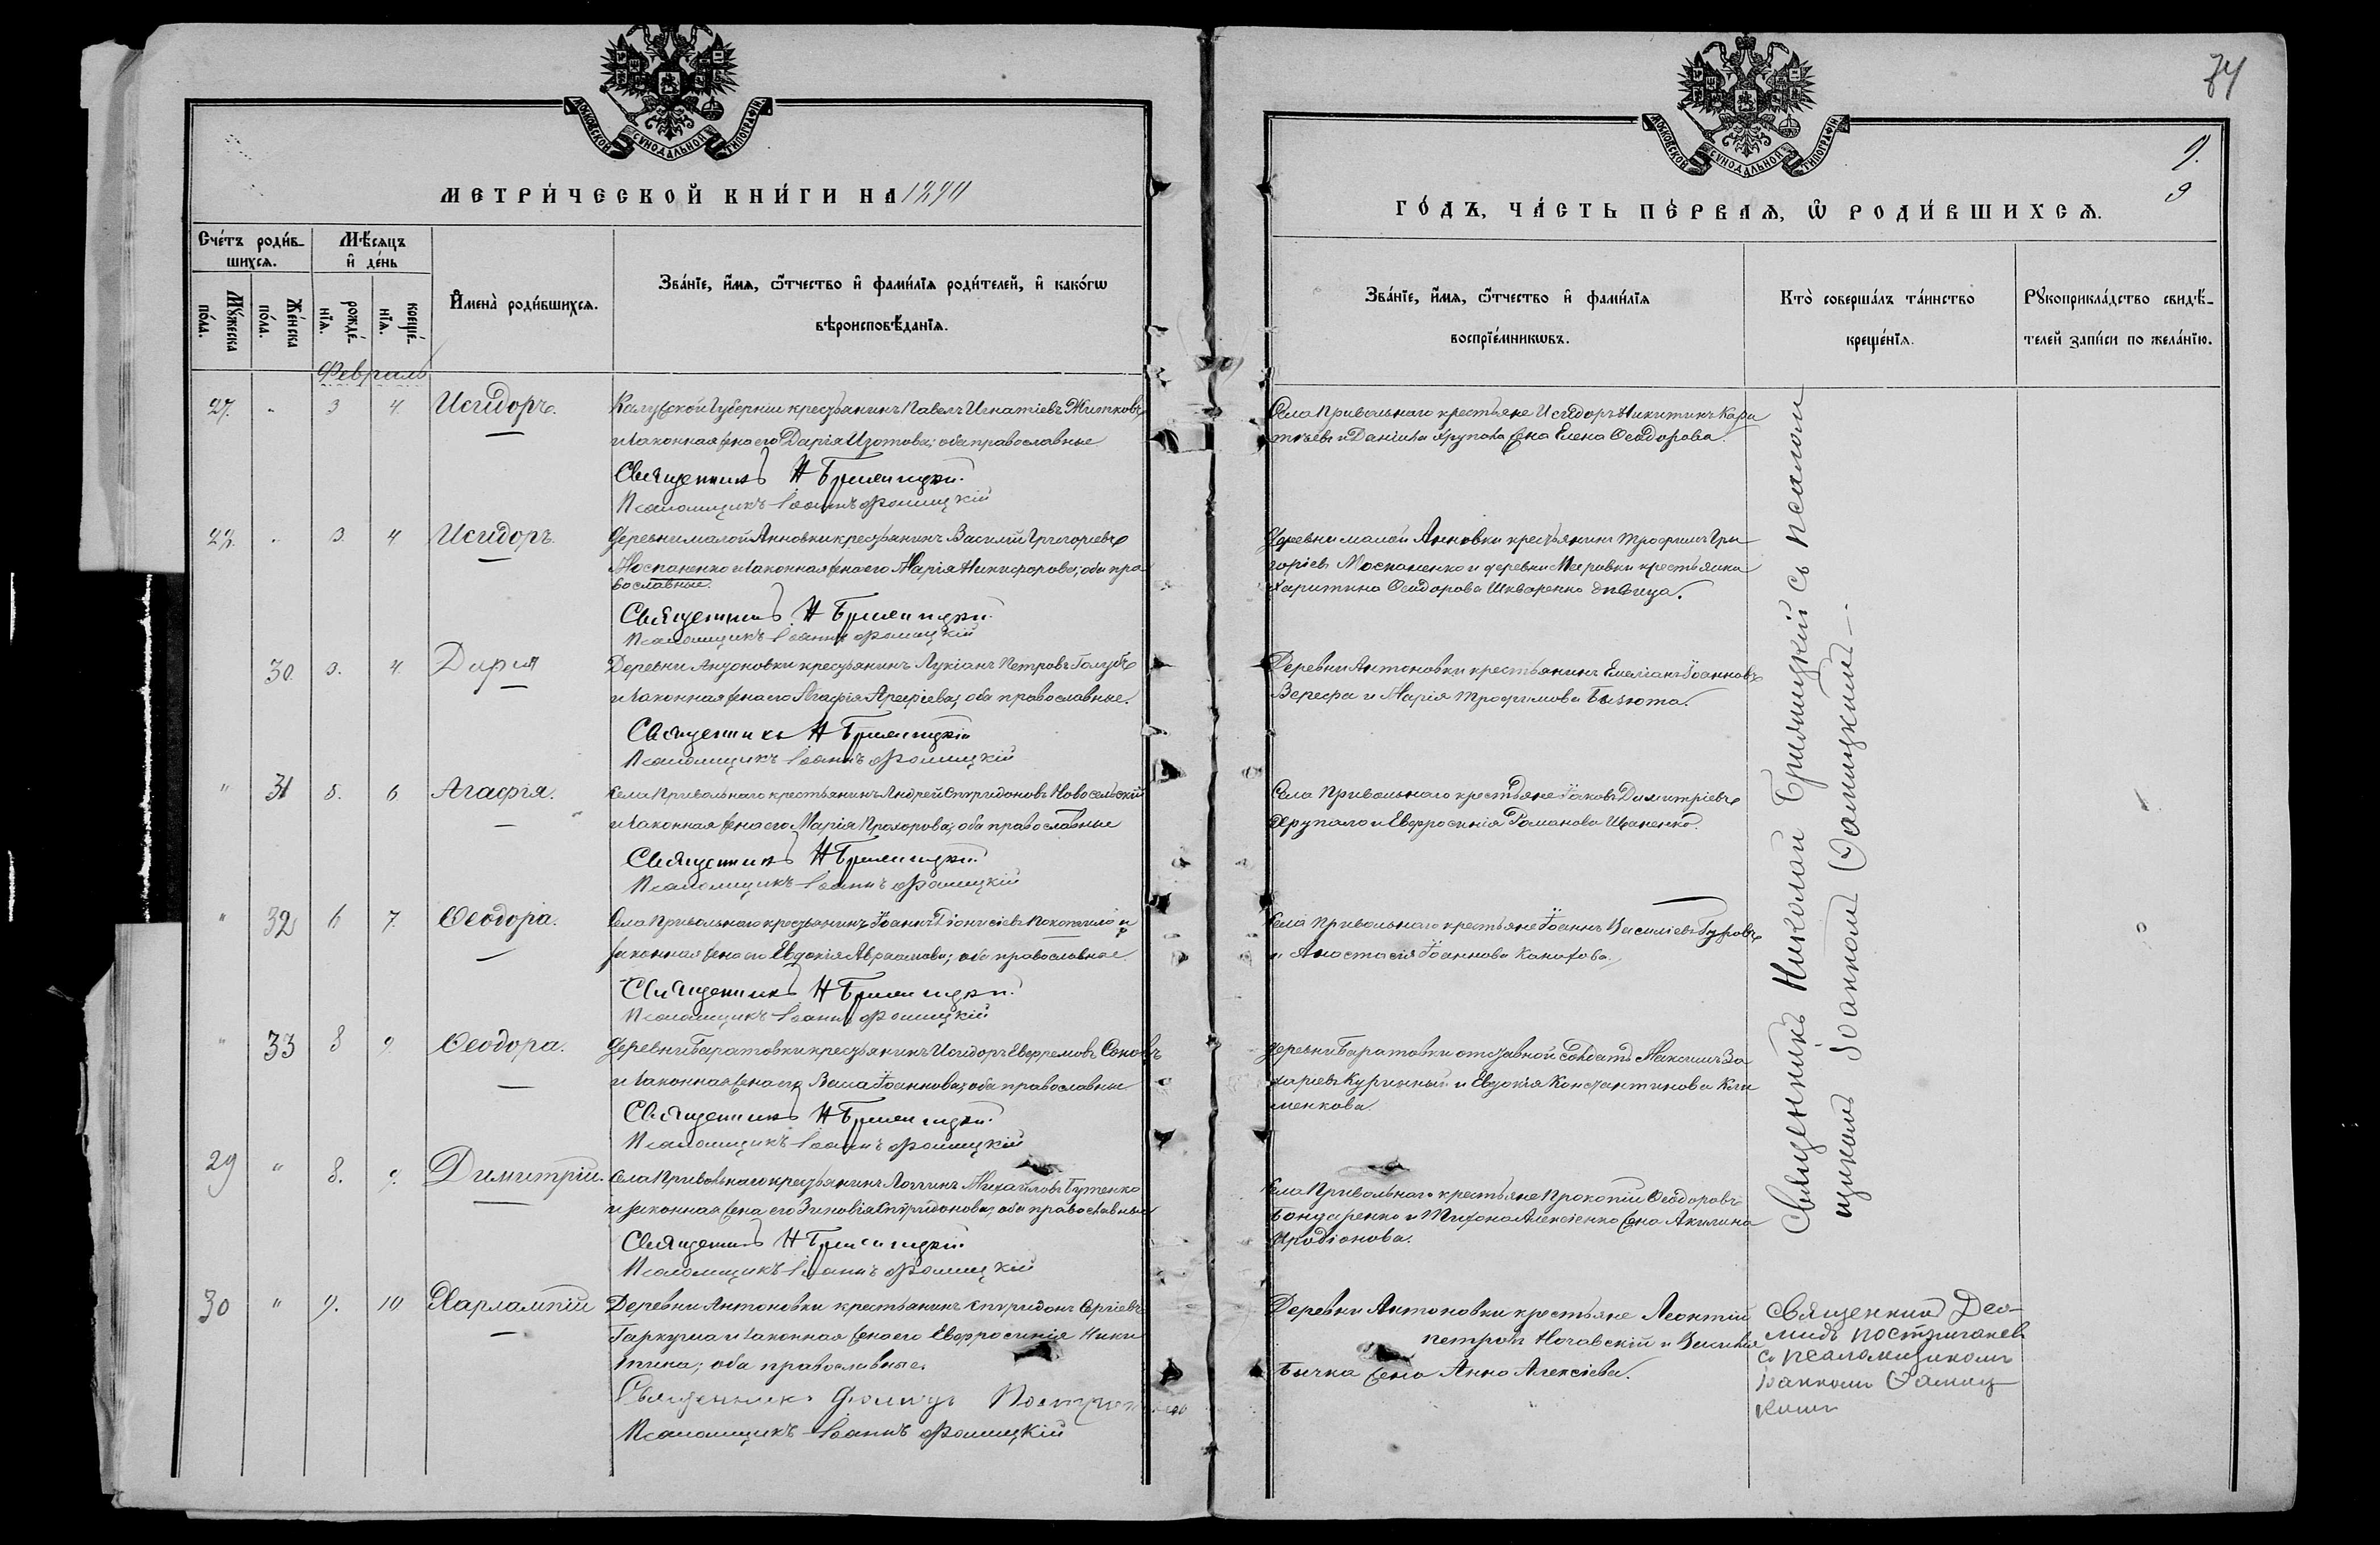 МОСКОВСКОЙ СѴНОДАЛЬНОЙ ТИПОГРАФІИ
МЕТРИ́ЧЕСКОЙ КНИ́ГИ НА 1890
Сче́тъ роди́в-
шихсѧ.
Мѣ́сяцъ
и҆ де́нь
Мꙋ́жеска
по́ла.
Же́нска
по́ла.
рожде́-
нїѧ.
креще́-
нїѧ.
И҆мена̀ роди́вшихсѧ.
Зва́нїе, и҆́мѧ, ѻ҆́тчество и҆ фами́лїѧ роди́телей, и҆ како́гѡ
вѣроисповѣ́данїѧ.
Февраль
27. " 3 4. Исидоръ.
Калужской Губерніи крестьянинъ Павелъ Игнатіевъ Житковъ
и законная жена его Дарія Изотова; оба православные
Священникъ Н Бриленицкій
Псаломщикъ Іоаннъ Фомицкій
28. " 3. 4 Исидоръ.
Деревни малой Анновки крестьянинъ Василій Григоріевъ
Моспаненко и законная жена его Марія Никифорова; оба пра
вославные.
Священникъ Н Бриленицкій
Псаломщикъ Іоаннъ Фомицкій
30. 3. 4. Дарія
Деревни Антоновки крестьянинъ Лукіанъ Петровъ Голубъ
и законная жена его Агафія Арефіева; оба православные.
Священникъ Н Бриленицкій
Псаломщикъ Іоаннъ Фомицкій
" 31 5. 6 Агафія.
Села Привольнаго крестьянинъ Андрей Спиридоновъ Новосельскій
и законная жена его Марія Прохорова; оба православные
Священникъ Н Бриленицкій
Псаломщикъ Іоаннъ Фомицкій
" 32 6 7. Ѳеодора.
Села Привольнаго крестьянинъ Іоаннъ Діонисіевъ Покотило и
законная жена его Евдокія Авраамова; оба православные
Священникъ Н Бриленицкій
Псаломщикъ Іоаннъ Фомицкій
" 33 8 9. Ѳеодора.
Деревни Баратовки крестьянинъ Исидоръ Ефремовъ
и законная жена его Васса Іоаннова; оба православные
Священникъ Н Бриленицкій
Псаломщикъ Іоаннъ Фомицкій
29 " 8. 9. Димитрій.
Села Привольнаго крестьянинъ Логгинъ Михайловъ Бутенко
и законная жена его Зиновія Спиридонова; оба православные
Священникъ Н Бриленицкій
Псаломщикъ Іоаннъ Фомицкій
30 " 9. 10 Харлампій
Деревни Антоновки крестьянинъ Спиридонъ Сергіевъ
Гаркуша и законная жена его Евфросинія Ники
тина; оба православные.
Священникъ
Псаломщикъ Іоаннъ Фомицкій
74
МОСКОВСКОЙ СѴНОДАЛЬНОЙ ТИПОГРАФІИ
9.
9
ГО́ДЪ, ЧА́СТЬ ПЕ́РВАѦ, Ѽ РОДИ́ВШИХСѦ.
Зва́нїе, и҆́мѧ, ѻ҆́тчество и҆ фами́лїѧ
воспрїе́мникѡвъ.
Кто̀ соверша́лъ та́инство
креще́нїѧ.
Рꙋкоприкла́дство свидѣ́-
телей за́писи по жела́нїю.
Села Привольнаго крестьяне Исидоръ Никитинъ
и Даніила Хрупала жена Елена Ѳеодорова.
Деревни малой Анновки крестьянинъ Трофимъ Гри
горіевъ Моспаненко и деревни крестьянка
Харитина Ѳеодорова Шкваренко дѣвица.
Деревни Антоновки крестьянинъ Емеліанъ Іоанновъ
и Марія Трофимова Бызюта.
Села Привольнаго крестьяне Іаковъ Димитріевъ
Хрупало и Евфросинія Романова
Села Привольнаго крестьяне Іоаннъ Василіевъ
и Анастасія Іоаннова
Деревни Баратовки отставной солдатъ Максимъ За
харіевъ Куринный и Евдокія Константинова Кли
менкова.
Села Привольнаго крестьяне Прокопій Ѳеодоровъ
Бондаренко и Тихона Алексіенко жена Акилина
Иродіонова.
Деревни Антоновки крестьяне Леонтій
Петровъ и Василія
Бычка жена Анна Алексіева.
Священникъ Николай Бриленицкій съ псалом
щикомъ Іоанномъ Фомицкимъ
Священникъ Дио-
мидъ Постригачевъ
съ псаломщикомъ
Іоанномъ Фомиц
кимъ